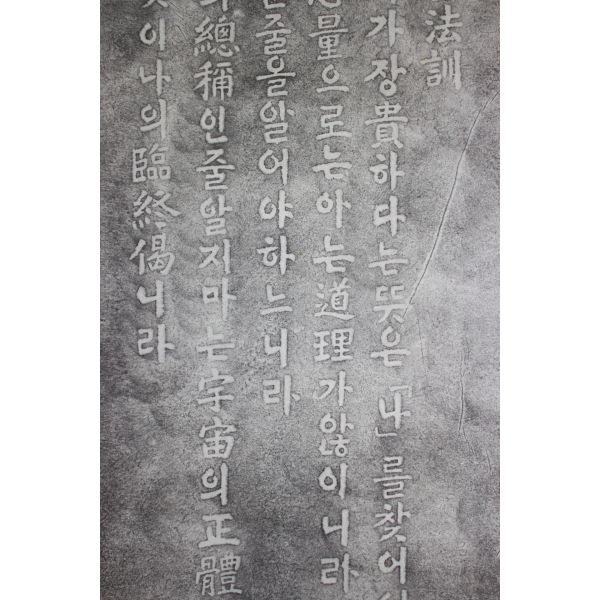 法訓
가장貴하다는뜻은「나」를찾어
量으로는아는道理가않이니라
줄을일어야하느니라
總稱인줄알지마는宇宙의正體
이나의臨終偈니라